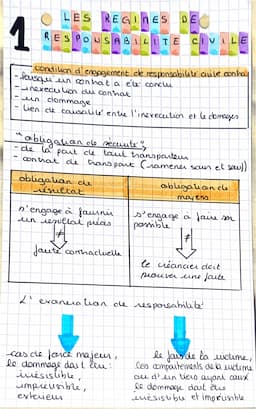 1
LES REGIMES DE
RESPONSABILITE CIVILE
condition d'engagement de responsabilité civile contrac
- lorsqu'un contrat a été conclu
- inexécution du contrat
- un dommage
- lien de causalité entre l'inexécution et le domages
"obligation de sécurité"
- de la part de tout transporteur
- contrat de transport (ramener sain et sauf)
obligation de résultat
obligation de moyens
s'engage à fournir
un résultat précis
≠
faute contractuelle
s'engage à faire son
possible
≠
le créancier doit
prouver une faute
L'exonération de responsabilité
- cas de force majeur,
le dommage doit être
irrésistible,
imprévisible,
extérieur
le fait de la victime,
les comportements de la victime
ou d'un tiers ayant causé
le dommage doit être
irrésistible et imprévisible